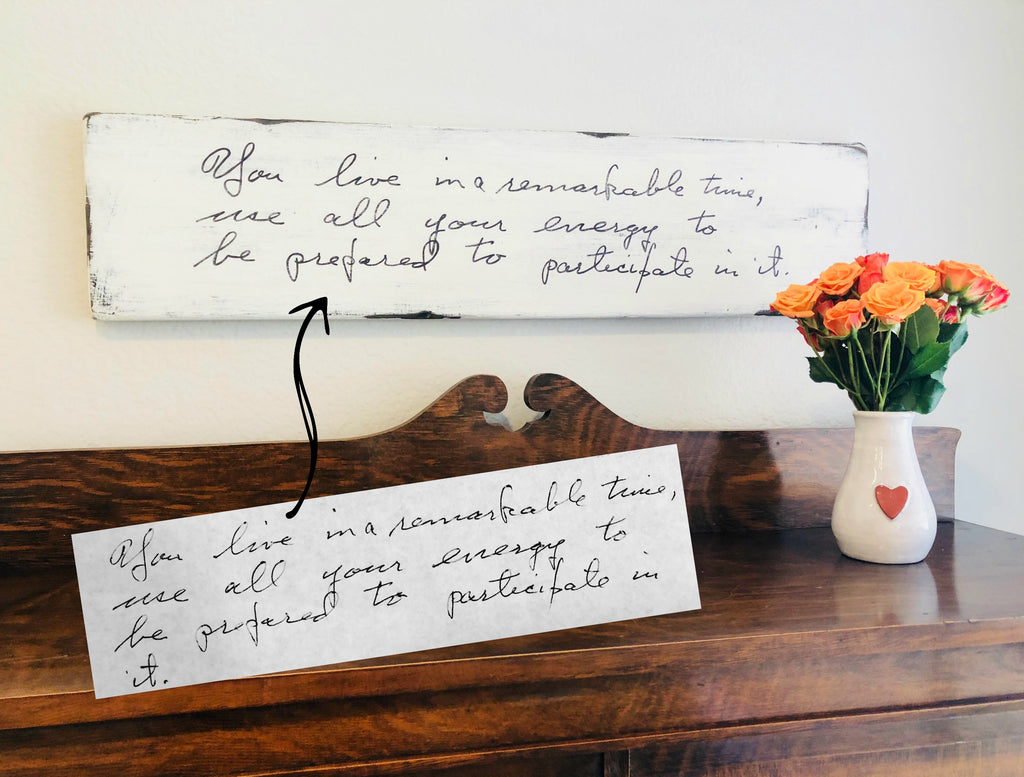 You live in a remarkable time,
use all your energy to
be prepared to participate in it.
You live in a remarkable time,
use all your energy to
be prepared to participate in
it.